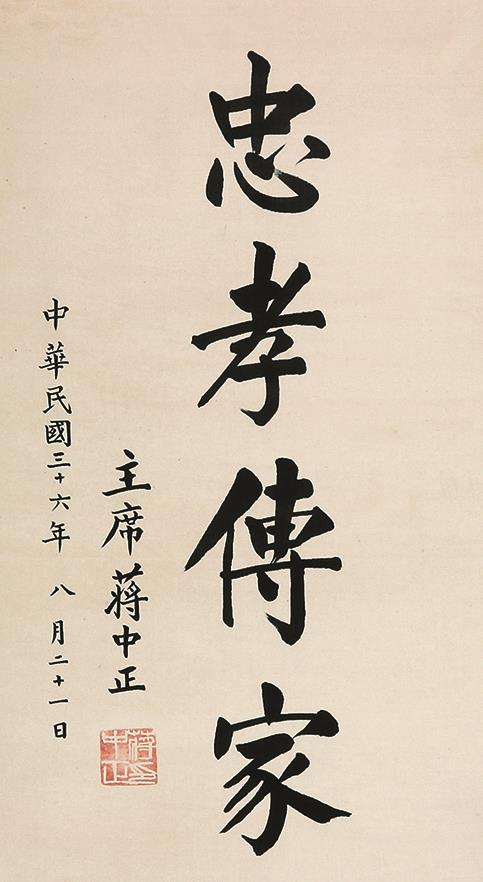 忠孝傳家
主席蔣中正
中華民國三十六年 八月二十一日
蔣中正印